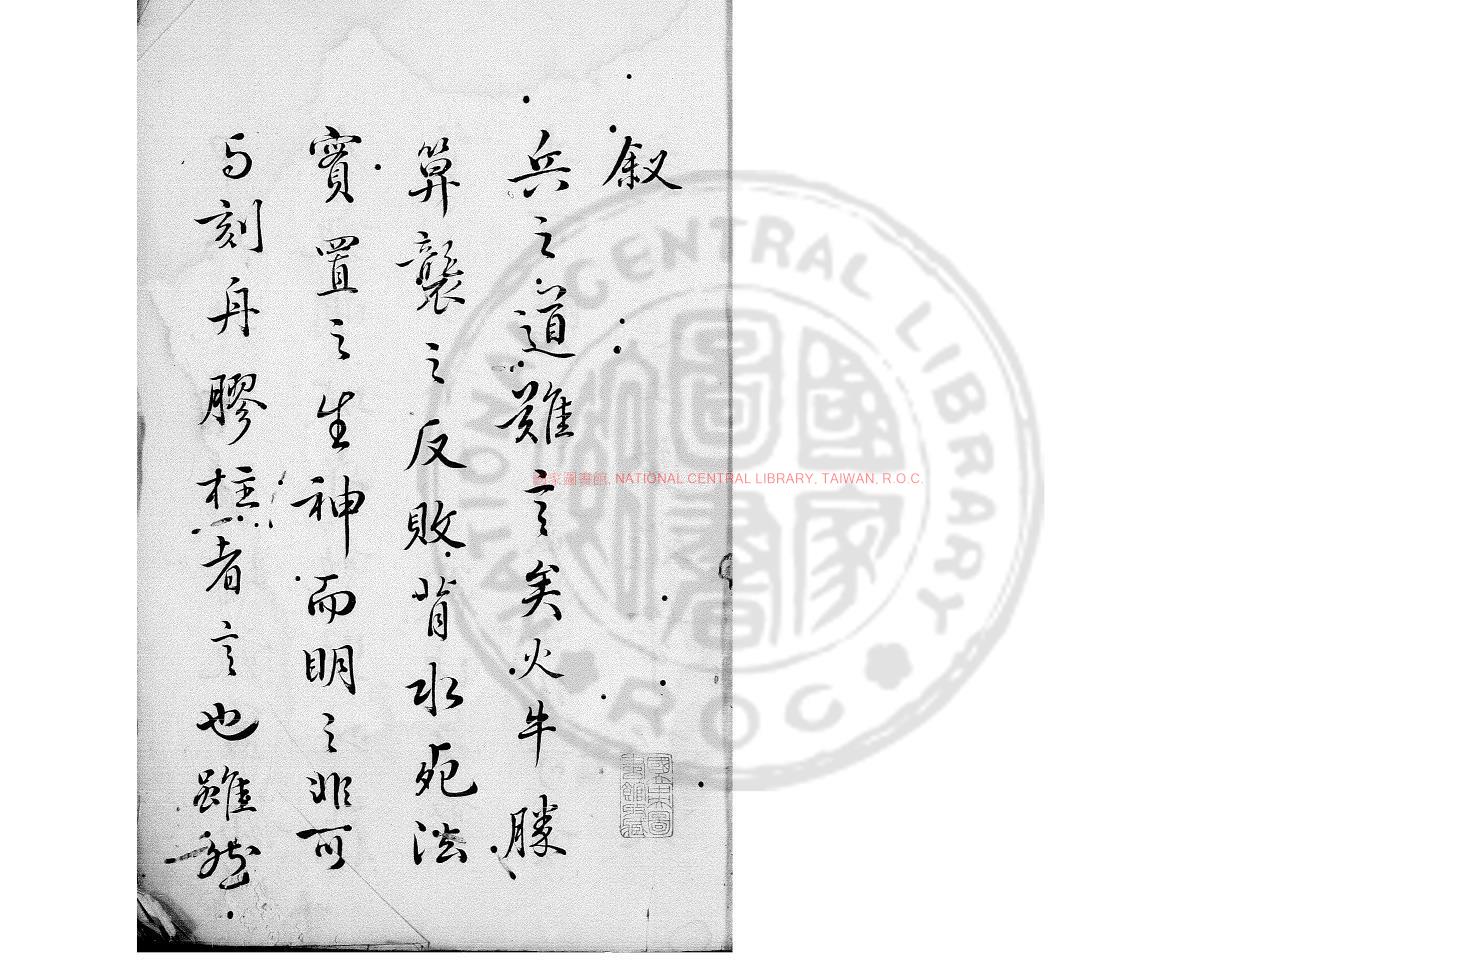 叙
兵之道難言矣火牛勝
算襲之反敗背水死法
實置之生神而明之非可
与刻舟膠柱者言也雖然
國家圖書館, NATIONAL CENTRAL LIBRARY, TAIWAN, R.O.C.
NATIONAL CENTRAL LIBRARY
ROC
國家圖書